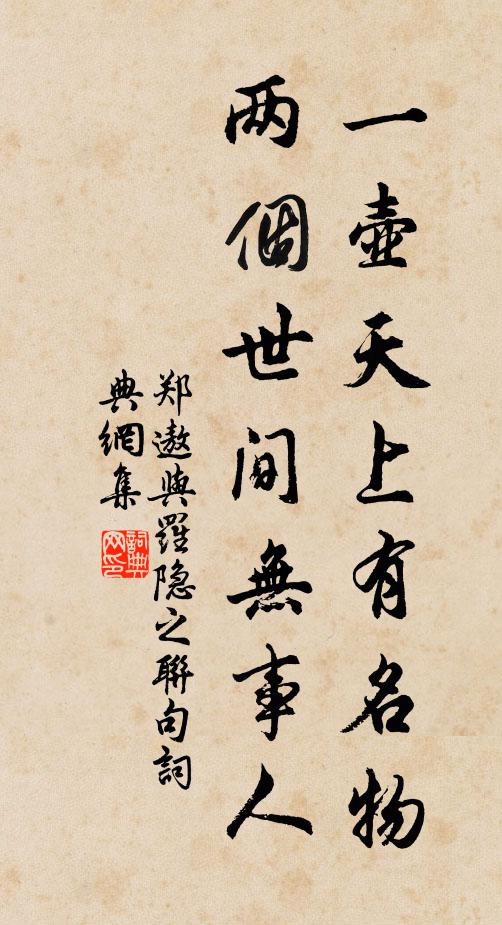 一壺天上有名物
两個世間無事人
郑遨與羅隐之聯句詞
典網集
詞典
网印